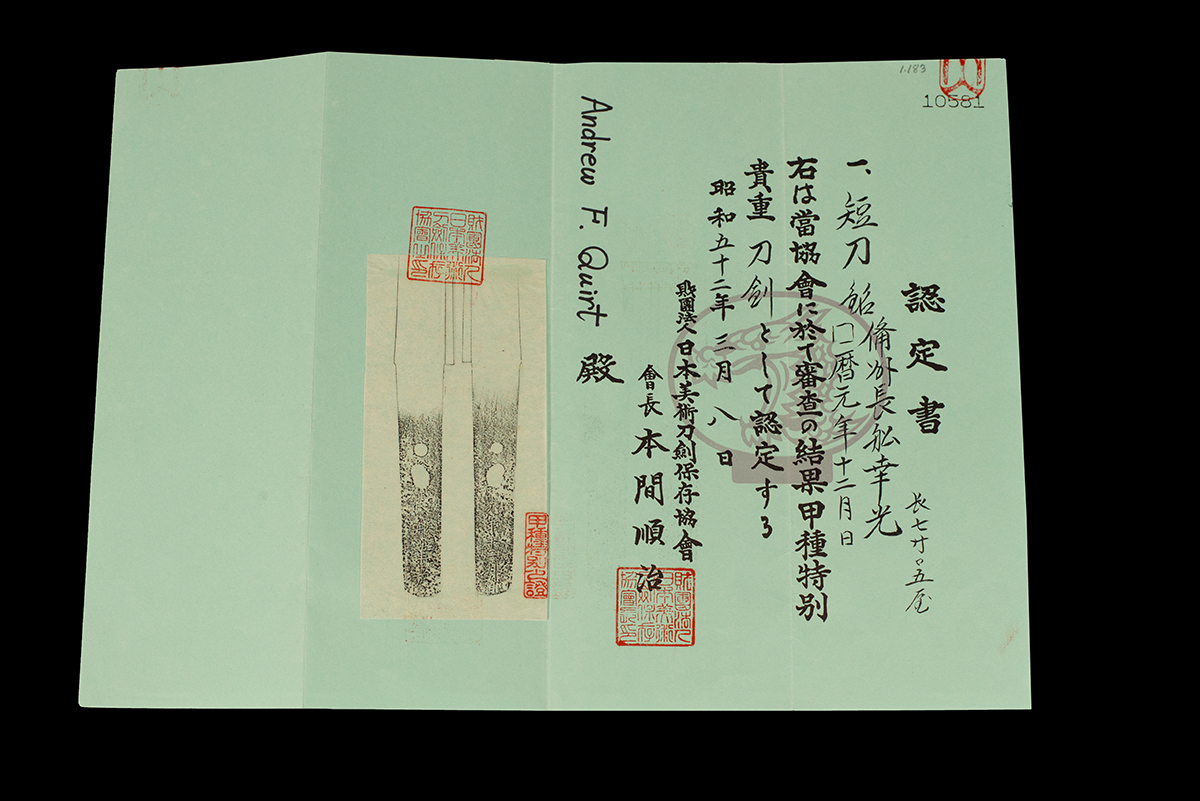 10581
1.183
認定書
一、短刀 銘 備州長舩幸光
□暦元年十二月日
長七寸五分
右は當協會に於て審査の結果甲種特別
貴重刀剣として認定する
昭和五十二年三月八日
財團法人日本美術刀劍保存協會
會長 本間順治
Andrew F. Quirt 殿
甲種特別之證